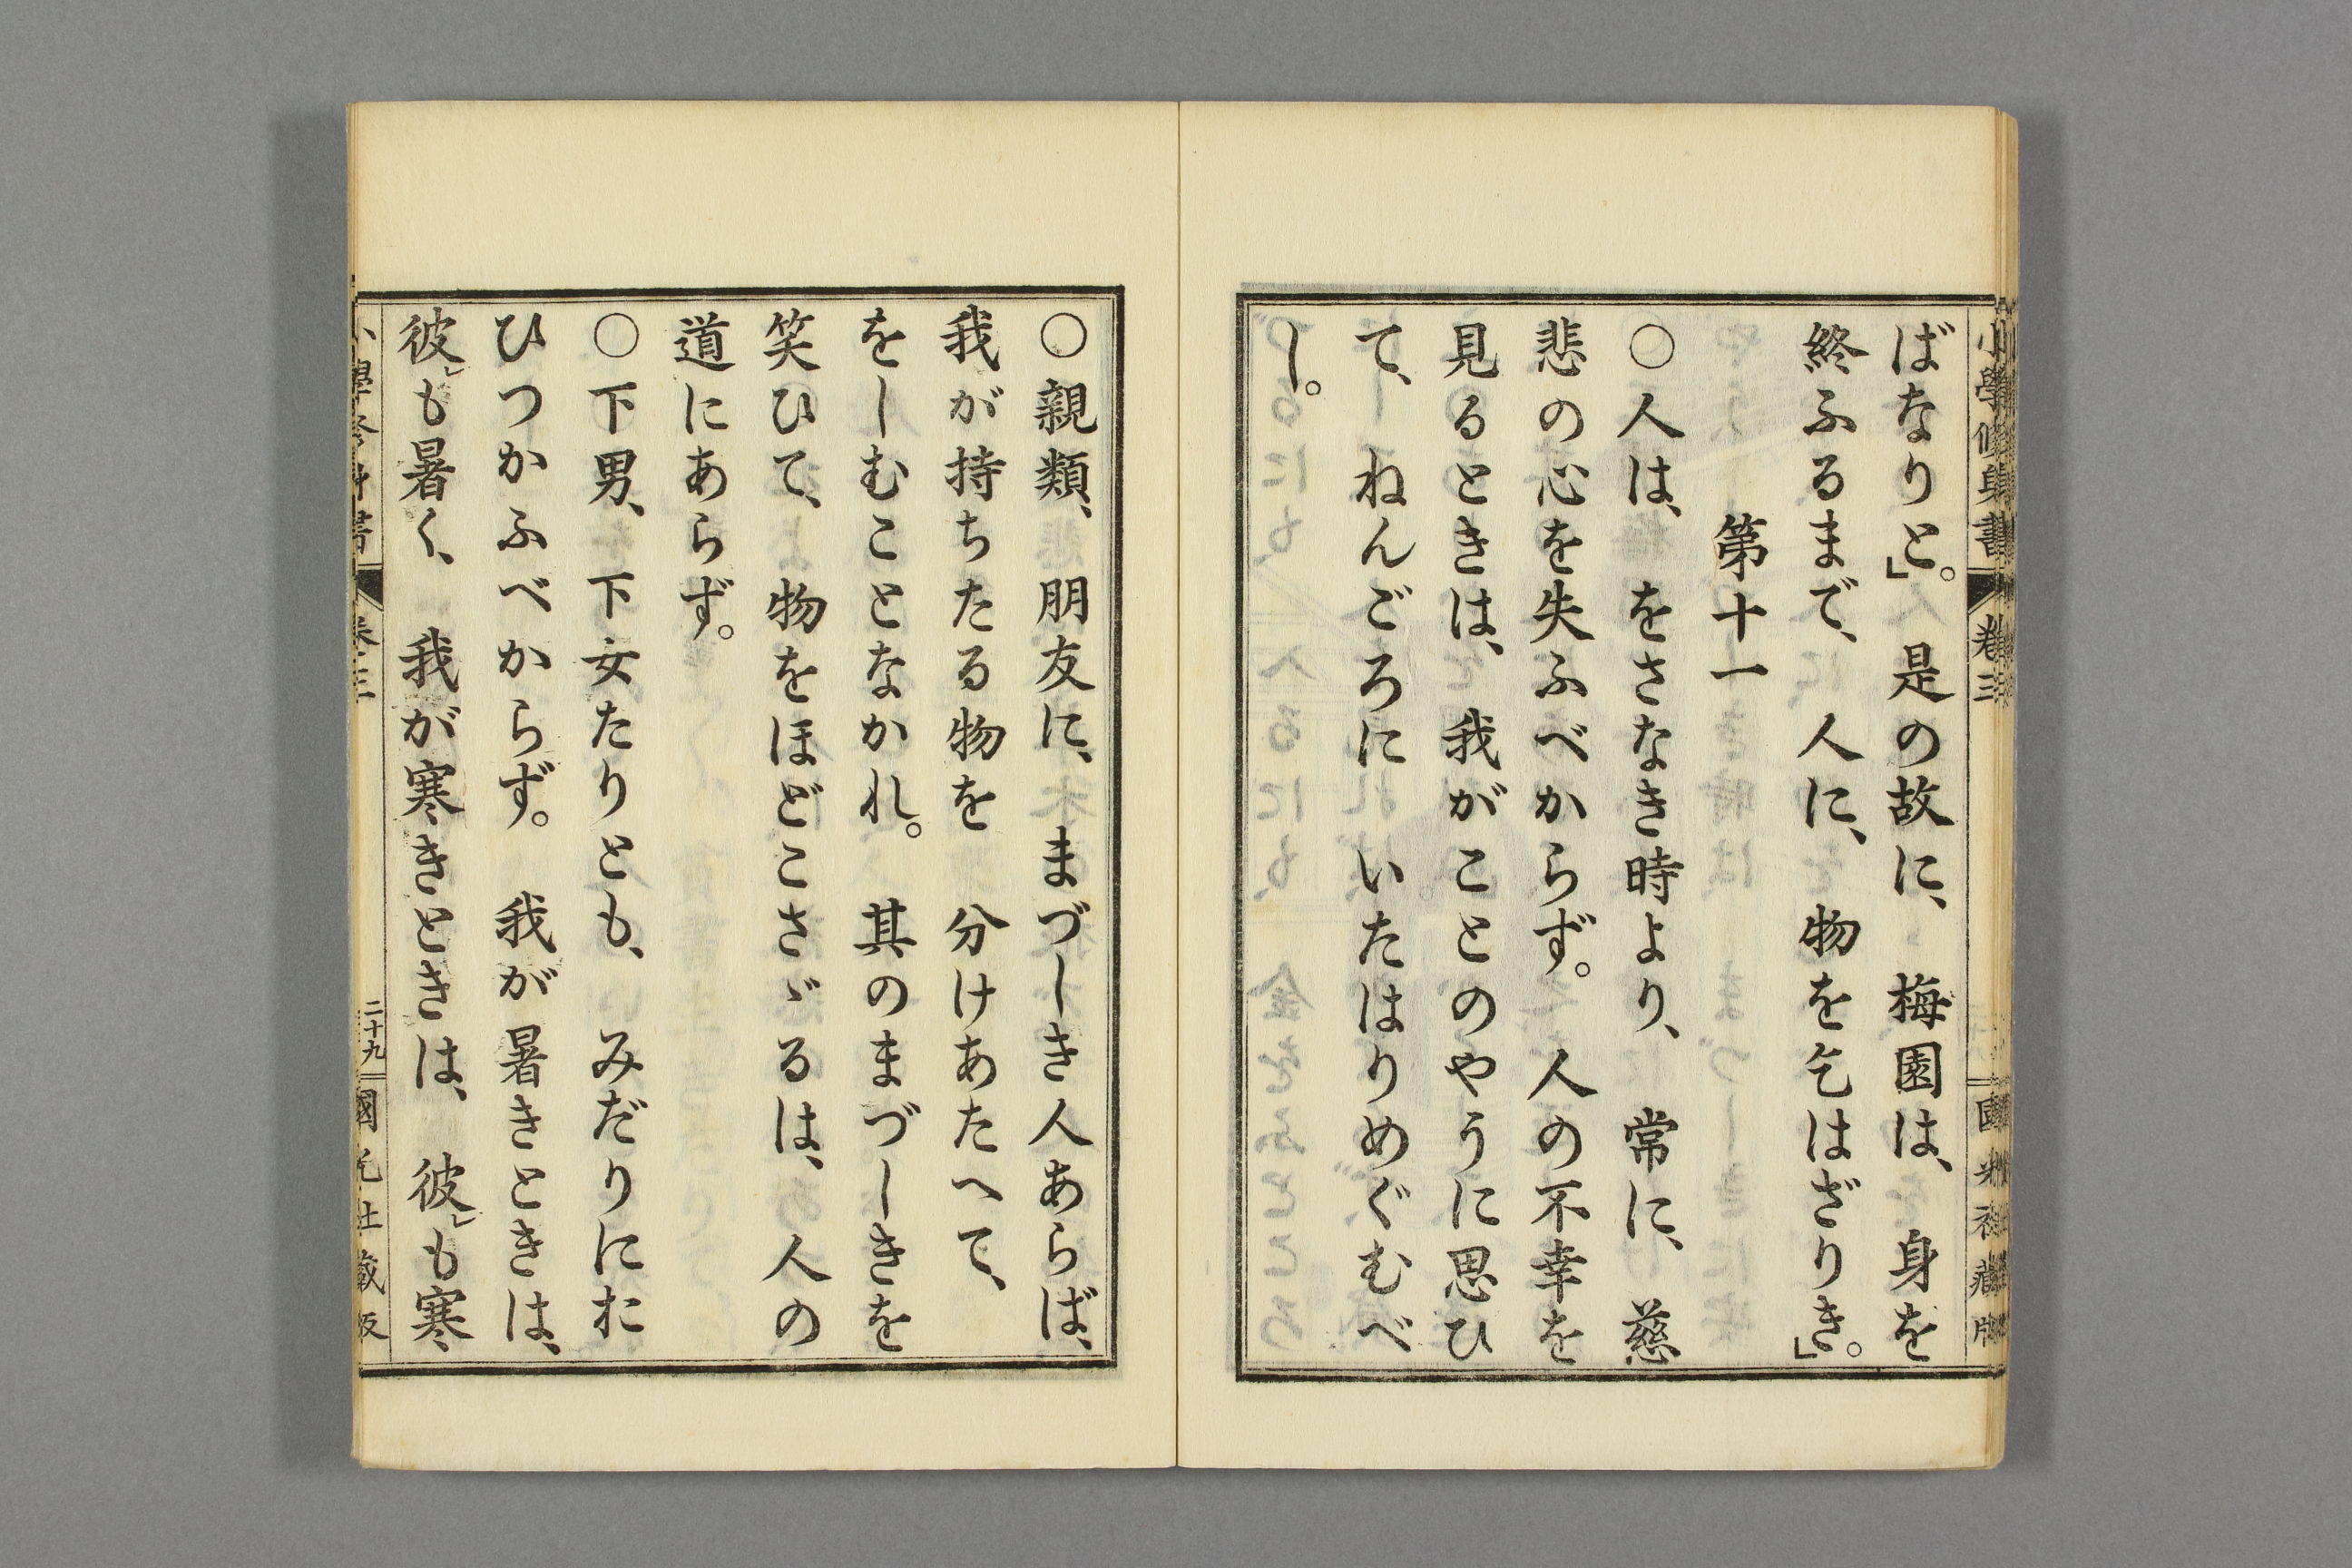 小學修身書 卷三 國光社藏版
ばなりと。」是の故に、梅園は、身を
終ふるまで、人に、物を乞はざりき。」
第十一
○人は、をさなき時より、常に、慈
悲の心を失ふべからず。人の不幸を
見るときは、我がことのやうに思ひ
て、ねんごろに いたはりめぐむべ
し。
○親類、朋友に、まづしき人あらば、
我が持ちたる物を 分けあたへて、
をしむことなかれ。其のまづしきを
笑ひて、物をほどこさゞるは、人の
道にあらず。
○下男、下女たりとも、みだりにお
ひつかふべからず。我が暑きときは、
彼も暑く、我が寒きときは、彼も寒
小學修身書 卷三 二十九 國光社藏版